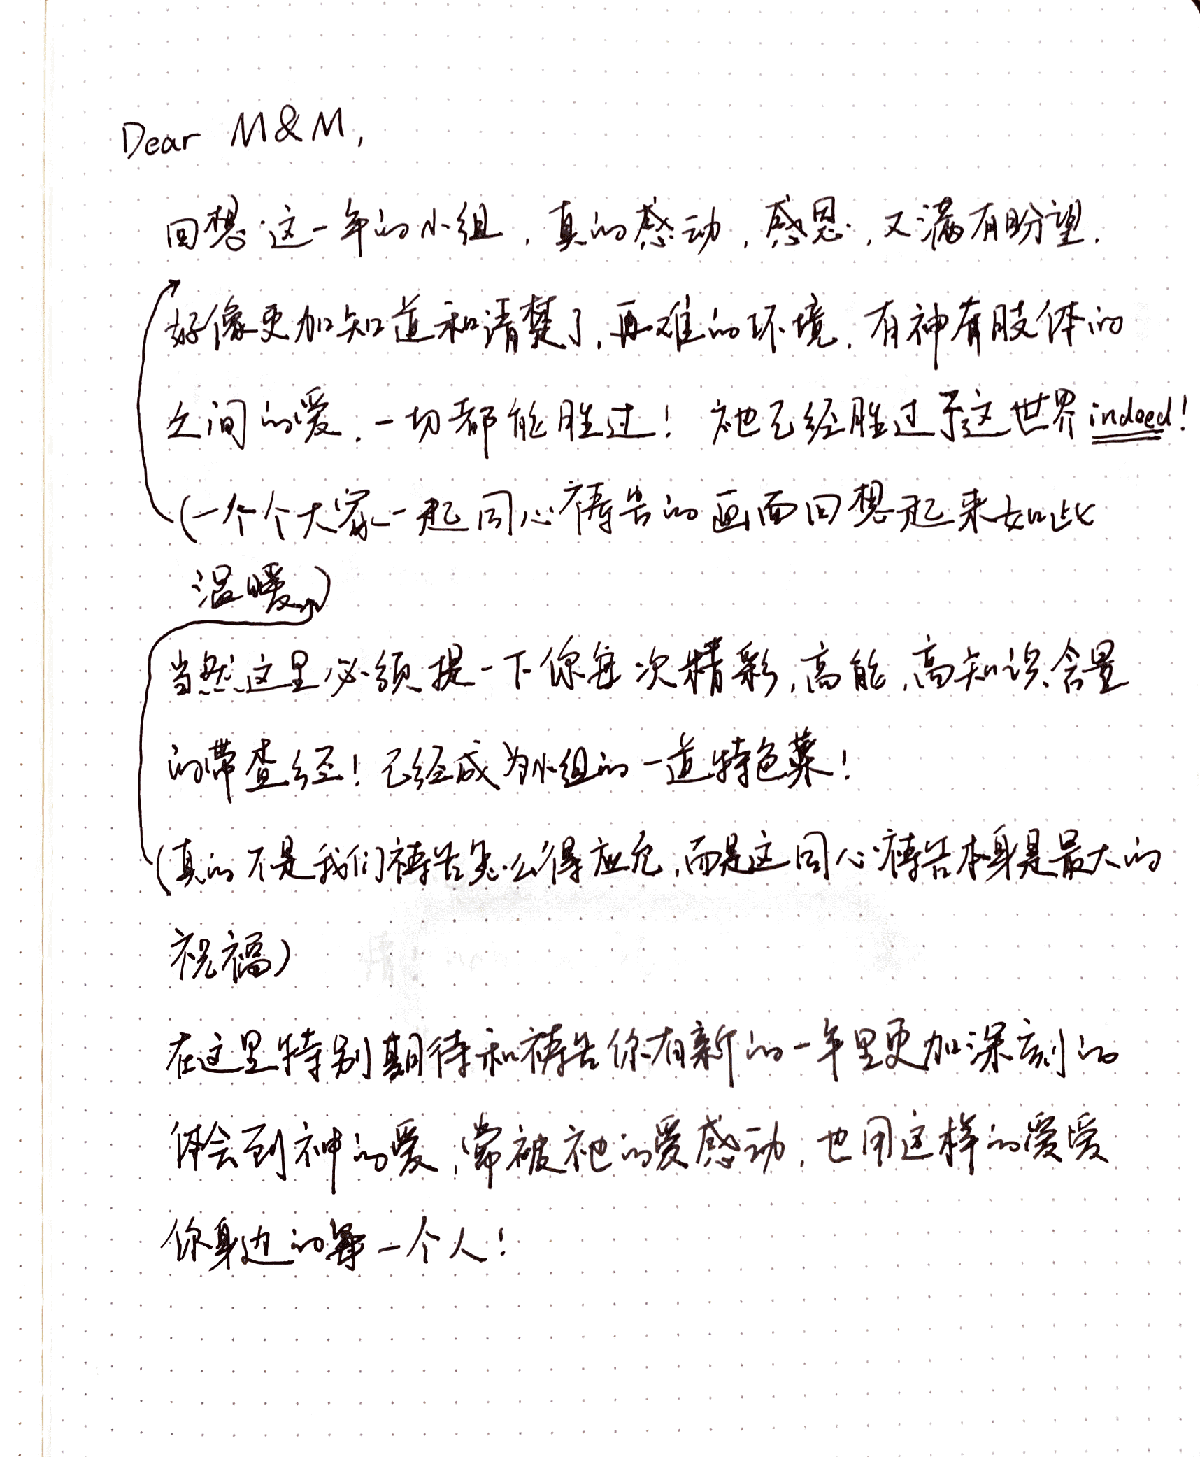 Dear M&M,
回想这一年的小组，真的感动，感恩，又满有盼望．
好像更加知道和清楚了，再难的环境，有神有肢体的
之间的爱，一切都能胜过！祂已经胜过了这世界 indeed！
(一个个大家一起同心祷告的画面回想起来如此
温暖)
当然这里必须提一下你每次精彩，高能，高知识含量
的带查经！已经成为小组的一道特色菜！
(真的不是我们祷告怎么得应允，而是这同心祷告本身是最大的
祝福)
在这里特别期待和祷告你有新的一年里更加深刻的
体会到神的爱，常被祂的爱感动，也用这样的爱爱
你身边的每一个人！